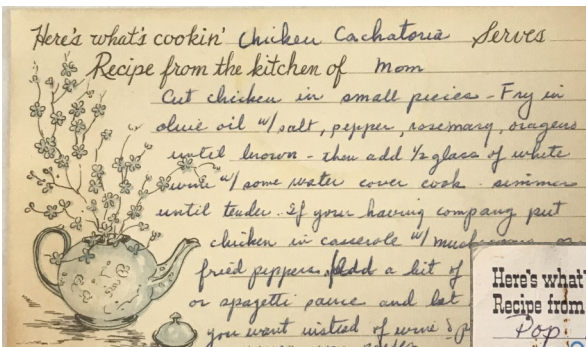 Here's what's cookin' Chicken Cachatoria Serves
Recipe from the kitchen of Mom
Cut chicken in small pieces - Fry in
olive oil w/ salt, pepper, rosemary, oragens
until brown - then add 1/2 glass of white
wine w/ some water cover cook simmer
until tender. If you having company put
chicken in casserole w/ or
fried peppers. Add a bit of
or spagetti sauce and let
you want instead of wine
Here's what'
Recipe from
Pop